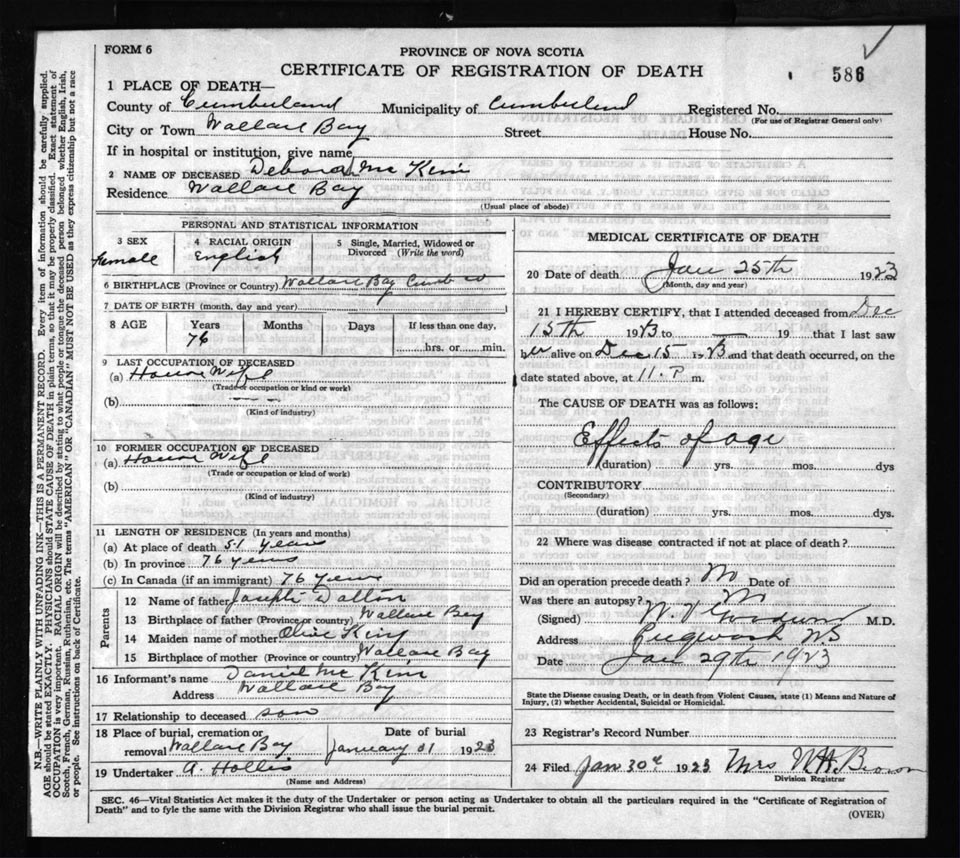 FORM 6
PROVINCE OF NOVA SCOTIA
CERTIFICATE OF REGISTRATION OF DEATH
586
1 PLACE OF DEATH—
County of Cumberland Municipality of Cumberland Registered No.
(For use of Registrar General only)
City or Town Wallace Bay Street House No.
If in hospital or institution, give name
2 NAME OF DECEASED Deborah Mc Kim
Residence Wallace Bay
(Usual place of abode)
PERSONAL AND STATISTICAL INFORMATION
3 SEX
female
4 RACIAL ORIGIN
English
5 Single, Married, Widowed or Divorced (Write the word)
6 BIRTHPLACE (Province or Country) Wallace Bay Cumb
7 DATE OF BIRTH (month, day and year)
8 AGE Years Months Days If less than one day,
76 hrs. or min.
9 LAST OCCUPATION OF DECEASED
(a) House Wife
(Trade or occupation or kind or work)
(b)
(Kind of industry)
10 FORMER OCCUPATION OF DECEASED
(a) House Wife
(Trade or occupation or kind of work)
(b)
(Kind of industry)
11 LENGTH OF RESIDENCE (In years and months)
(a) At place of death 51 years
(b) In province 76 years
(c) In Canada (if an immigrant) 76 years
Parents
12 Name of father Joseph Dalton
13 Birthplace of father (Province or country) Wallace Bay
14 Maiden name of mother Olive King
15 Birthplace of mother (Province or country) Wallace Bay
16 Informant's name Daniel Mc Kim
Address Wallace Bay
17 Relationship to deceased son
18 Place of burial, cremation or Date of burial
removal Wallace Bay January 31 1923
19 Undertaker A. Hollis
(Name and Address)
MEDICAL CERTIFICATE OF DEATH
20 Date of death Jan 25th 1923
(Month, day and year)
21 I HEREBY CERTIFY, that I attended deceased from Dec
15th 1923 to 19 that I last saw
her alive on Dec 15 1923 and that death occurred, on the
date stated above, at 11. P m.
The CAUSE OF DEATH was as follows:
Effects of age
(duration) yrs. mos. dys
CONTRIBUTORY
(Secondary)
(duration) yrs. mos. dys.
22 Where was disease contracted if not at place of death?
Did an operation precede death? No Date of
Was there an autopsy?
(Signed) M.D.
Address Pugwash NS
Date Jan 29th 1923
State the Disease causing Death, or in death from Violent Causes, state (1) Means and Nature of
Injury, (2) whether Accidental, Suicidal or Homicidal.
23 Registrar's Record Number
24 Filed Jan 30th 1923 Mrs W.H. Brown
Division Registrar
SEC. 46—Vital Statistics Act makes it the duty of the Undertaker or person acting as Undertaker to obtain all the particulars required in the "Certificate of Registration of
Death" and to fyle the same with the Division Registrar who shall issue the burial permit.
(OVER)
N.B.—WRITE PLAINLY WITH UNFADING INK—THIS IS A PERMANENT RECORD. Every item of information should be carefully supplied.
AGE should be stated EXACTLY. PHYSICIANS should STATE CAUSE OF DEATH in plain terms, so that it may be properly classified. Exact statement of
OCCUPATION is very important. RACIAL ORIGIN will be described by stating to what people or tongue the deceased person belonged whether English, Irish,
Scotch, French, German, Russian, Ruthenian, etc. The terms "AMERICAN" OR "CANADIAN" MUST NOT BE USED as they express citizenship but not a race
or people. See instructions on back of Certificate.